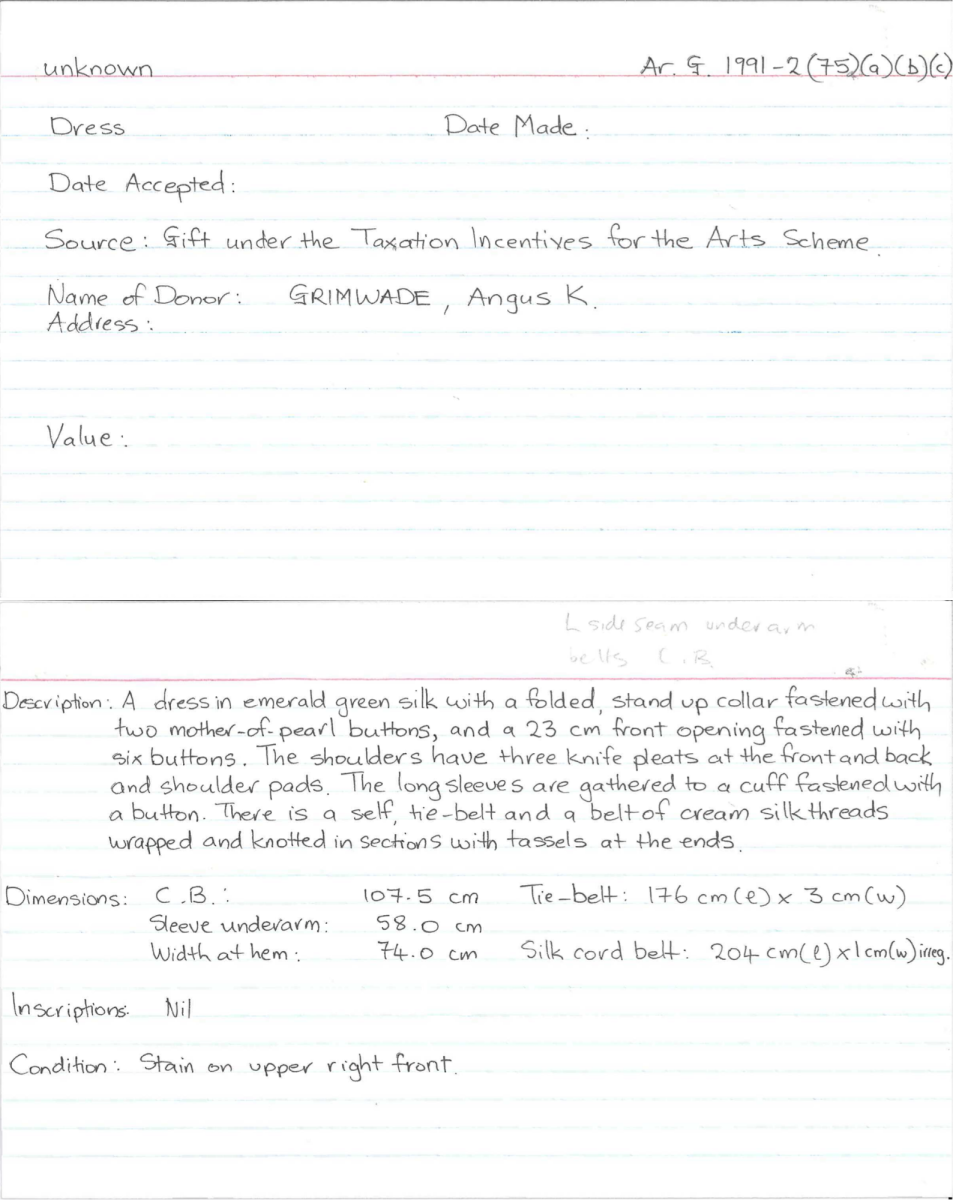 unknown Ar. G. 1991-2(75)(a)(b)(c)
Dress Date Made:
Date Accepted:
Source: Gift under the Taxation Incentives for the Arts Scheme.
Name of Donor: GRIMWADE, Angus K.
Address:
Value:
L side seam underarm
belts C.B.
Description: A dress in emerald green silk with a folded, stand up collar fastened with
two mother-of-pearl buttons, and a 23 cm front opening fastened with
six buttons. The shoulders have three knife pleats at the front and back
and shoulder pads. The long sleeves are gathered to a cuff fastened with
a button. There is a self, tie-belt and a belt of cream silk threads
wrapped and knotted in sections with tassels at the ends.
Dimensions: C.B.: 107.5 cm Tie-belt: 176 cm(l) x 3 cm(w)
Sleeve underarm: 58.0 cm
Width at hem: 74.0 cm Silk cord belt: 204 cm(l) x 1 cm(w) irreg.
Inscriptions: Nil
Condition: Stain on upper right front.